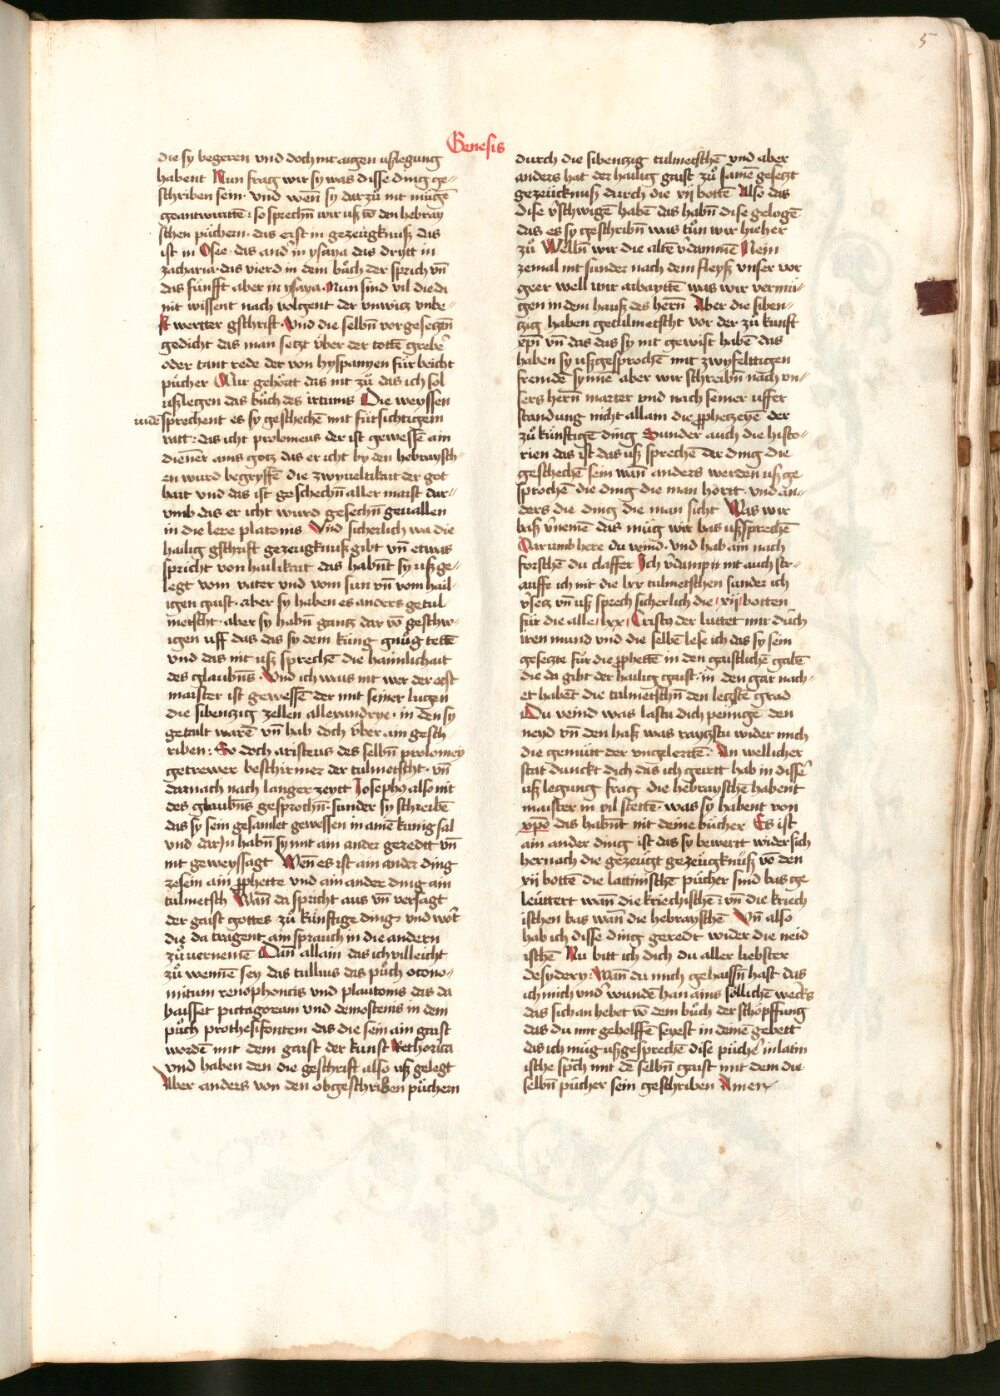 5
Genesis
die sy begeren vnd doch mit augen vßlegung
habent Nun frag wir sy was disse ding ge-
schriben sein · vnd wen̄ sy dar zů nit mügē
geantwurttē : so sprechn̄ wir uß vō den hebray
schen püchern · das erst in gezeügknuß das
ist in Osee · das and' in ysaya das drytt in
zacharia · das vierd in dem bůch der sprich vn̄
das fünfft aber in ysaya · Nun sind vil die di
nit wissent nach volgent der vnwicz vnbe-
wertter gschrifft · vnd die selbn̄ vorgesetzn̄
gedicht das man setzt vber der tottē greber
oder tant rede der von hyspanyen für beicht
pücher Mir gehörtt das nit zů das ich sol
ußlegen das bůch des irtums Die weyssen
iudē sprechent es sy geschechē mit fürsichtigem
ratt : das icht ptolomeus der ist gewessē ain
dienēr ains gotz das er icht by den hebraysch-
en wurd begryffē die zwyueltikait der got
hait vnd das ist geschechn̄ aller maist dar-
vmb das er icht wurd gesechn̄ geuallen
in die lere platonis Vnd sicherlich wa die
hailig gschrift gezeugknuß gibt vn̄ etwas
spricht von hailikait das habn̄t sy uß ge-
legt vom vater vnd vom sun vn̄ vom hail-
igen gaist · aber sy haben es anders getul
metscht · aber sy habn̄ gantz dar vō geschw-
igen uff das das sy dem küng gnůg tettē
vnd das nit uß sprechē die haimlichait
des glaubn̄s · Vnd ich wais nit wer der erst
maister ist gewessē der mit seiner lugen
die sibenzig zellen allexandrye · in den sy
getailt warē vn̄ hab doch vber ain gesch-
riben : So doch aristeus des selbn̄ ptolomey
getrewer beschirmer der tulmetscht · vn̄
darnach nach langer zeytt Josephus also nit
des glaubn̄s gesprochn̄ · sunder sy schreibē
das sy sein gesamlet gewessen in aīnē künig sal
vnd dar Jn habn̄ sy mit ain ander geredtt vn̄
nit geweyssagt Wen es ist ain ander ding
ze sein ain prophette vnd ain ander ding ain
tulmetsch Wan̄ da spricht aus vn̄ versagt
der gaist gottes zů künftige ding · vnd wort
die da tragent ain sprauch in die andern
zů vernemē Dan̄ allain das ich villeicht
zů wennē sey das tullius das půch otono-
mitum xenophontis vnd plautonis das da
haisset pictagoram vnd demostenis in dem
půch prothesifontem das die sein ain gaist
wordē mit dem gaist der kunst Rethorica
vnd haben den die geschrift also uß gelegt
Aber anders von den obgeschriben püchern
durch die sibenzig tulmetschē vnd aber
anders hat der hailig gaist zů samē gesetzt
gezeücknuß durch die xij bottē Also das
dise v'schwigē habē das habn̄ dise gelogē
das es sy geschribn̄ was tůn wir hie her
zů Welln̄ wir die altē v'dammē Nein
zemal nit sunder nach dem fleyß vnser vor
geer well wir arbayttē was wir vermü-
gen in dem hauß des hern̄ Aber die siben-
zig haben getulmetscht vor der zů kunft
xpi vn̄ das das sy nit gewist habē das
haben sy ußgesprochē mit zwyfelttigen
fremdē synnē aber wir schreibn̄ nach vn-
sers hern̄ marter vnd nach seiner uffer
standung nicht allain die prophezeyē der
zů künftigē ding Sunder auch die histo-
rien das ist das uß sprechē der ding die
geschechē sein wan̄ anders werden uß ge
sprochē die ding die man hörrt · vnd an-
ders die ding die man sicht Was wir
baß v'nemē das müg wir bas ußsprechē
Darumb here du veind · vnd hab ain nach
forschē du claffer Ich v'dampn nit auch str-
auffe ich nit die lxx tulmetschen sunder ich
v'setz vn̄ uß sprech sicherlich die xij botten
für die alle lxx Cristus der luttet mir durch
iren mund vnd die selbē lese ich das sy sein
gesetzte für die prophettē in den gaistlichē gabē
die da gibt der hailig gaist · in den gar nach-
et habēt die tulmetschn̄ den letzstē grad
Du veind was lastu dich peinigē den
neyd vn̄ den haß was raytzstu wider mich
die gemütt der vngelerttē : An wellicher
stat dunckt dich das ich geirtt hab in disser
uß legung frag die hebrayschē habent
maister in vil stettē · was sy habent von
xpē das habn̄t nit deine bücher Es ist
ain ander ding ist das sy bewertt wider sich
hernach die gezeügt gezeügknüß vō den
xij bottē die lattinischē pücher sind bas ge
leüttert wan̄ die kriechischē : vn̄ die kriech
ischen bas wan̄ die hebrayschē Vn̄ also
hab ich disse ding geredt wider die neid
ischē Nu bitt ich dich du aller liebster
desydery : Wan̄ du mich gehaissn̄ hast das
ich mich vnd'wunden han ains söllichē wecks
das sich an hebet vō dem bůch der schöpffung
das du mit geholffē seyest in deinē gebett
das ich müg ußgesprechē dise pücher in latin
ische sprch mit dē selbn̄ gaist mit dem die
selbn̄ pücher sein geschriben Amen